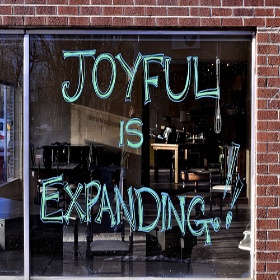 JOYFUL
IS
EXPANDING..!!